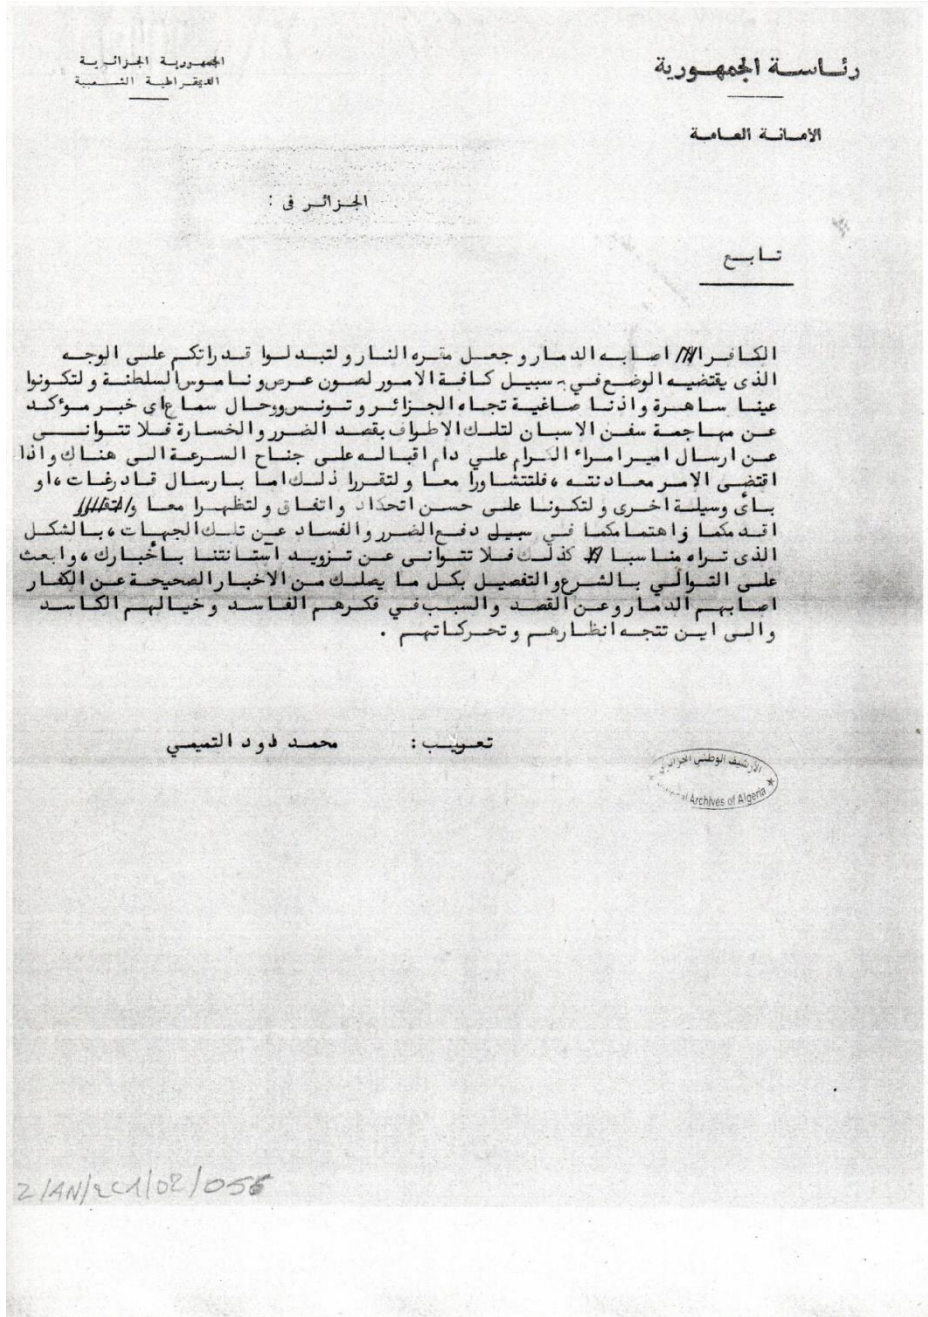 رئاسة الجمهورية
الجمهورية الجزائرية
الديمقراطية الشعبية
الامانة العامة
الجزائر فى :
تابع
الكافر اصابه الدمار وجعل مقره النار ولتبدلوا قدراتكم على الوجه
الذى يقتضيه الوضع في سبيل كافة الامور لصون عرض وناموس السلطنة ولتكونوا
عينا ساهرة واذنا صاغية تجاه الجزائر وتونس وحال سماع اى خبر موءكد
عن مهاجمة سفن الاسبان لتلك الاطواف بقصد الضرر والخسارة فلا تتوانى
عن ارسال امير امراء الكرام علي دام اقباله على جناح السرعة الى هناك واذا
اقتضى الامر معادنته ، فلتتشاورا معا ولتقررا ذلك اما بارسال قادرغات ، او
بأى وسيلة اخرى ولتكونا على حسن اتحاد واتفاق ولتظهرا معا
اقدمكما واهتمامكما في سبيل دفع الضرر والفساد عن تلك الجهيات ، بالشكل
الذى تراه مناسبا كذلك فلا تتوانى عن تزويد استانتنا باخبارك ، وابعث
على التوالي بالشرع والتفصيل بكل ما يصلك من الاخبار الصحيحة عن الكفار
اصابهم الدمار وعن القصد والسبب في فكرهم الفاسد وخيالهم الكاسد
والى اين تتجه انظارهم وتحركاتهم .
تعريب : محمد داود التميمي
الأرشيف الوطني الجزائري
Archives of Algeria
2/AN/2C1/02/056